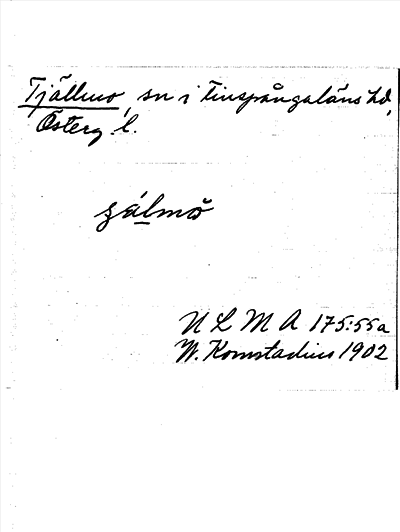 Tjällmo, sn i Finspångaläns hd,
Österg. l.
ULMA 175:55a
W. Komstadius 1902